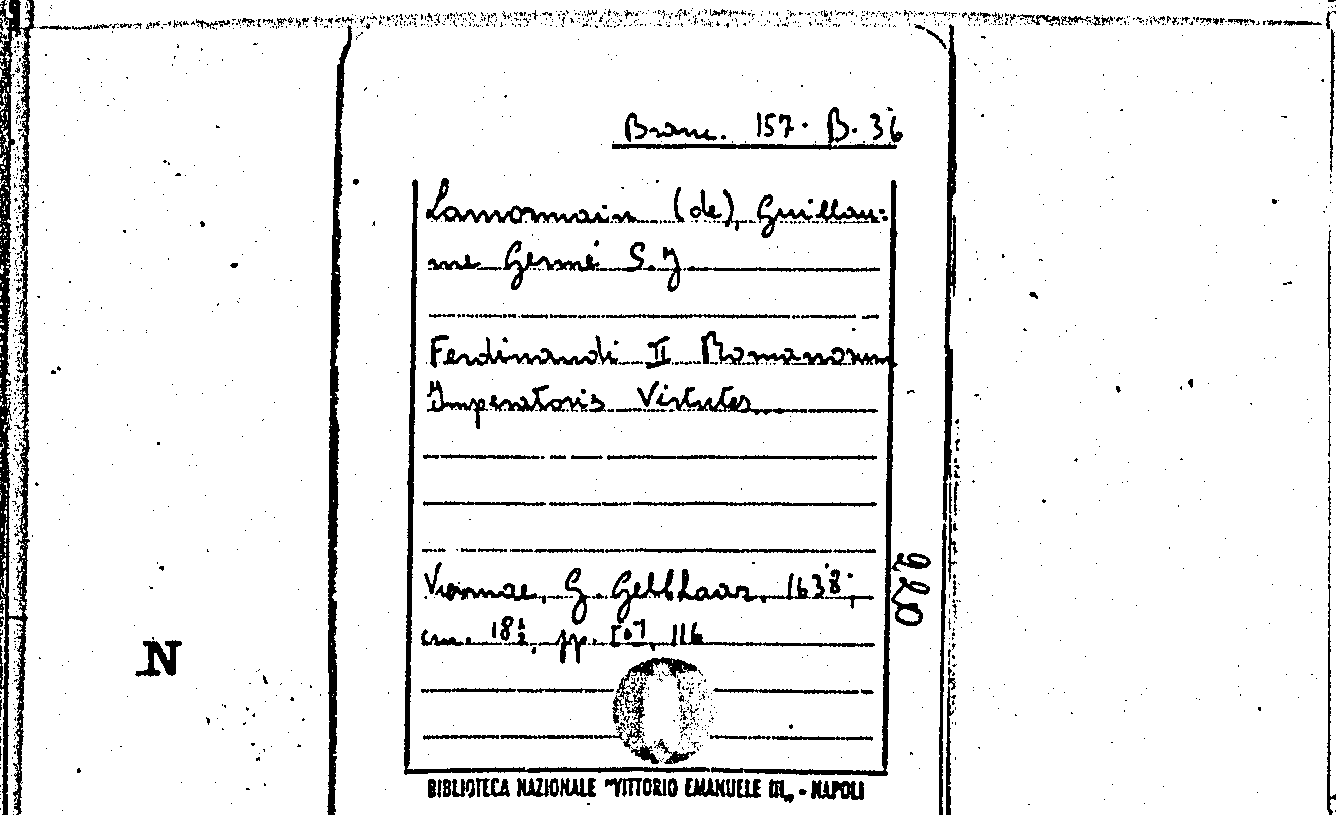 Branc. 157. B. 36
Lamormain (de), Guillau=
me Germé S.J
Ferdinandi II Romanorum
Imperatoris Virtutes
Viennae, G. Gelbhaar, 1638;
cm. 18½, pp. 116
220
N
BIBLIOTECA NAZIONALE "VITTORIO EMANUELE III„ - NAPOLI